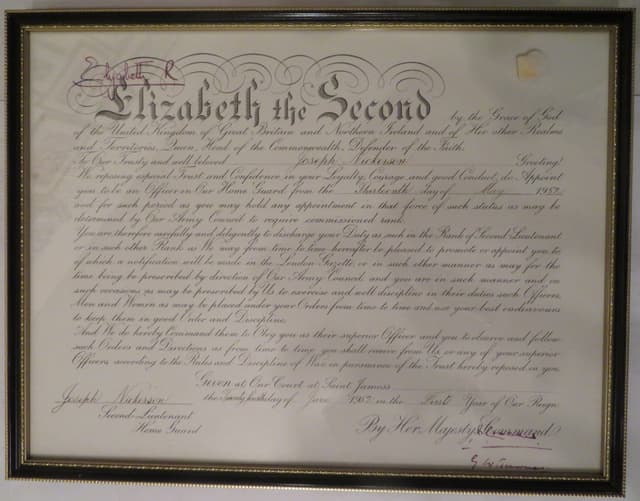 Elizabeth R
Elizabeth the Second
by the Grace of God
of the United Kingdom of Great Britain and Northern Ireland and of Her other Realms
and Territories, Queen, Head of the Commonwealth, Defender of the Faith.
To Our Trusty and well beloved Joseph Nickerson Greeting!
We reposing especial Trust and Confidence in your Loyalty, Courage and good Conduct, do Appoint
you to be an Officer in Our Home Guard from the Thirteenth day of May 1952
and for such period as you may hold any appointment in that force of such status as may be
determined by Our Army Council to require commissioned rank.
You are therefore carefully and diligently to discharge your Duty as such in the Rank of Second-Lieutenant
or in such other Rank as We may from time to time hereafter be pleased to promote or appoint you to
of which a notification will be made in the London Gazette, or in such other manner as may for the
time being be prescribed by direction of Our Army Council and you are in such manner and on
such occasions as may be prescribed by Us to exercise and well discipline in their duties such Officers,
Men and Women as may be placed under your Orders from time to time and use your best endeavours
to keep them in good Order and Discipline.
And We do hereby Command them to Obey you as their superior Officer and you to observe and follow
such Orders and Directions as from time to time you shall receive from Us, or any of your superior
Officers, according to the Rules and Discipline of War, in pursuance of the Trust hereby reposed in you.
Given at Our Court, at Saint James's
the day of June 1952 in the First Year of Our Reign
Joseph Nickerson
Second-Lieutenant
Home Guard
By Her Majesty's Command